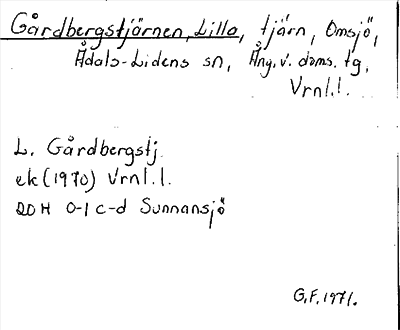 Gårdbergstjärnen, Lilla, tjärn, Omsjö,
Ådals-Lidens sn, Ång. v. doms. tg,
Vrnl.l.
L. Gårdbergstj.
ek (1970) Vrnl.l.
20H 0-1 c-d Sunnansjö
G.F. 1971.